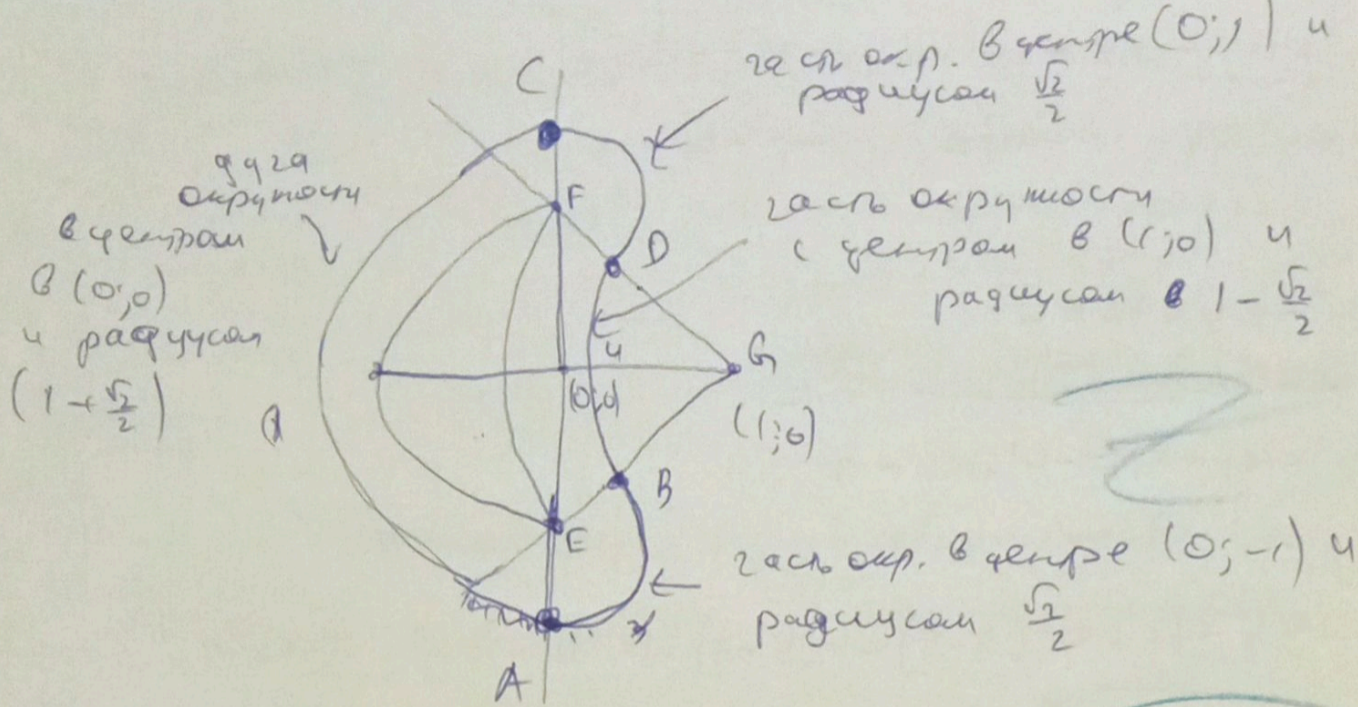 C
часть окр. в центре (0;1) и
радиусом √2/2
дуга
окружности
в центром
в (0;0)
и радиусом
(1+√2/2)
F
D
часть окружности
с центром в (1;0) и
радиусом в 1-√2/2
G
(0;0)
(1;0)
B
E
часть окр. в центре (0;-1) и
радиусом √2/2
A